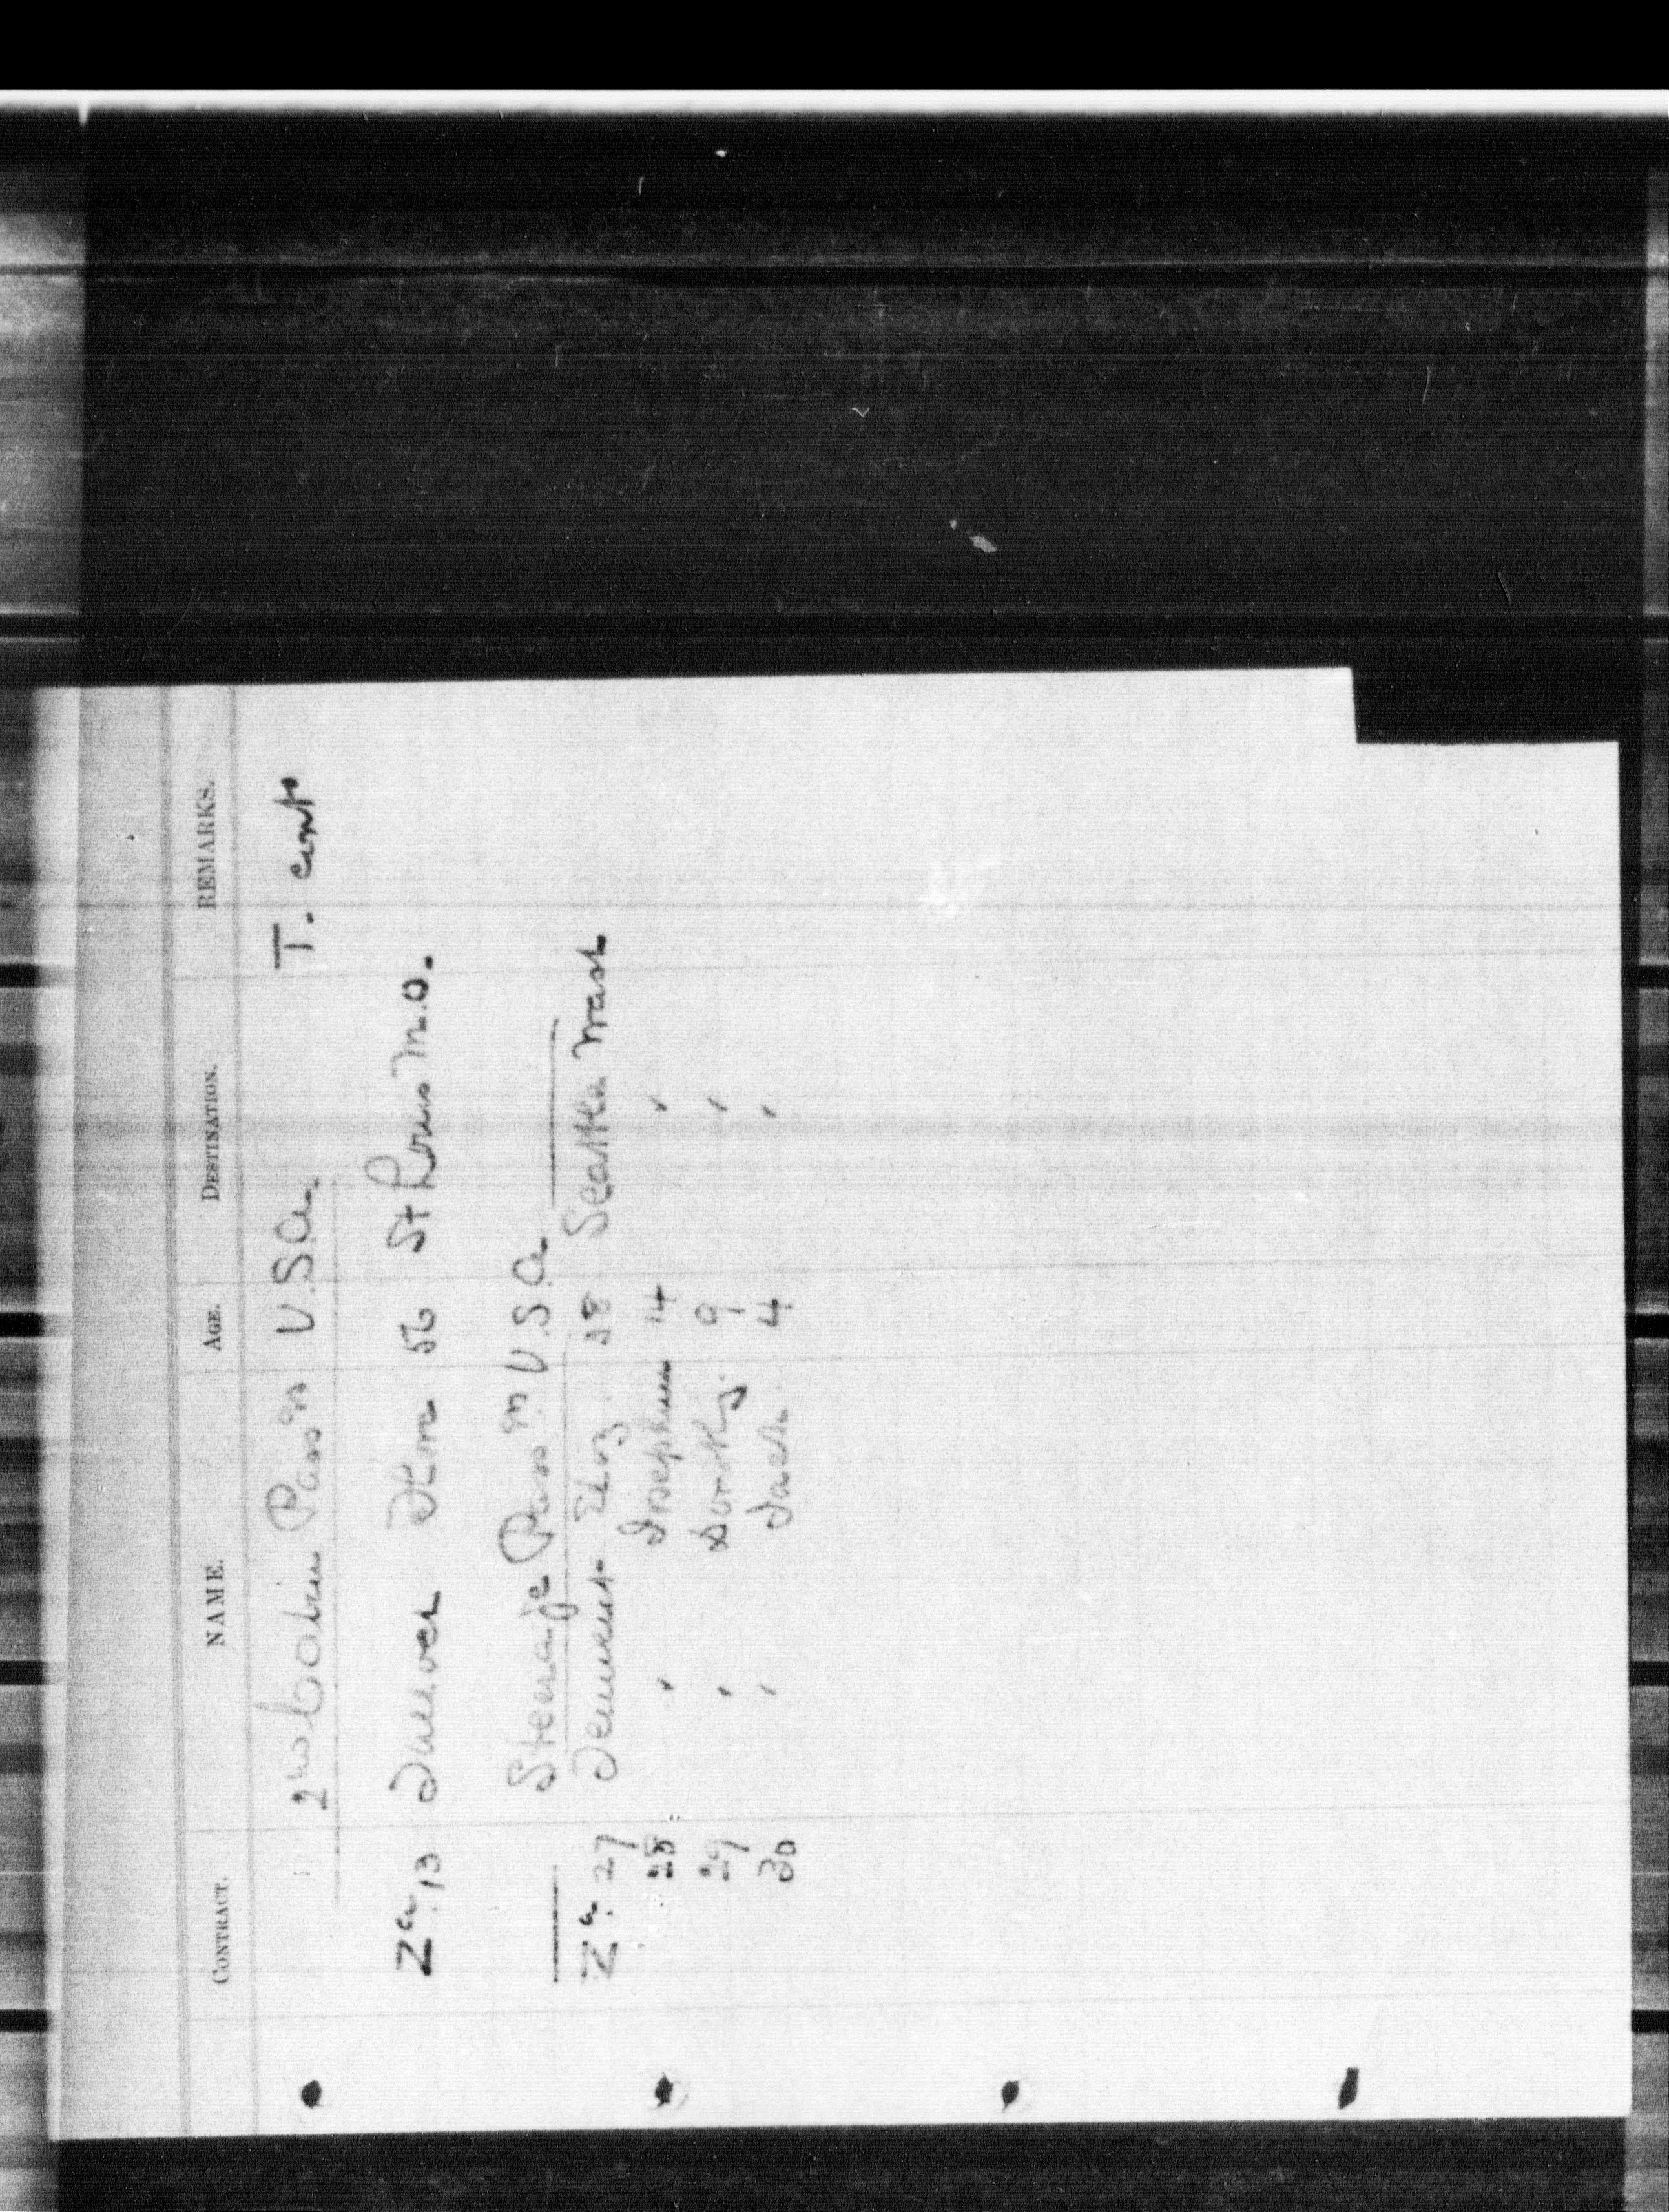 CONTRACT. NAME. AGE. DESTINATION. REMARKS.
2nd Cabin Pass'rs U.S.A. T. cont
Za 13 56 St Louis M.O.
Steerage Pass'rs U.S.A.
Za 27 Eliz 38 Seattle Wash
28 " Josephine 14 "
29 " Dorothy 9 "
30 " Jack 4 "